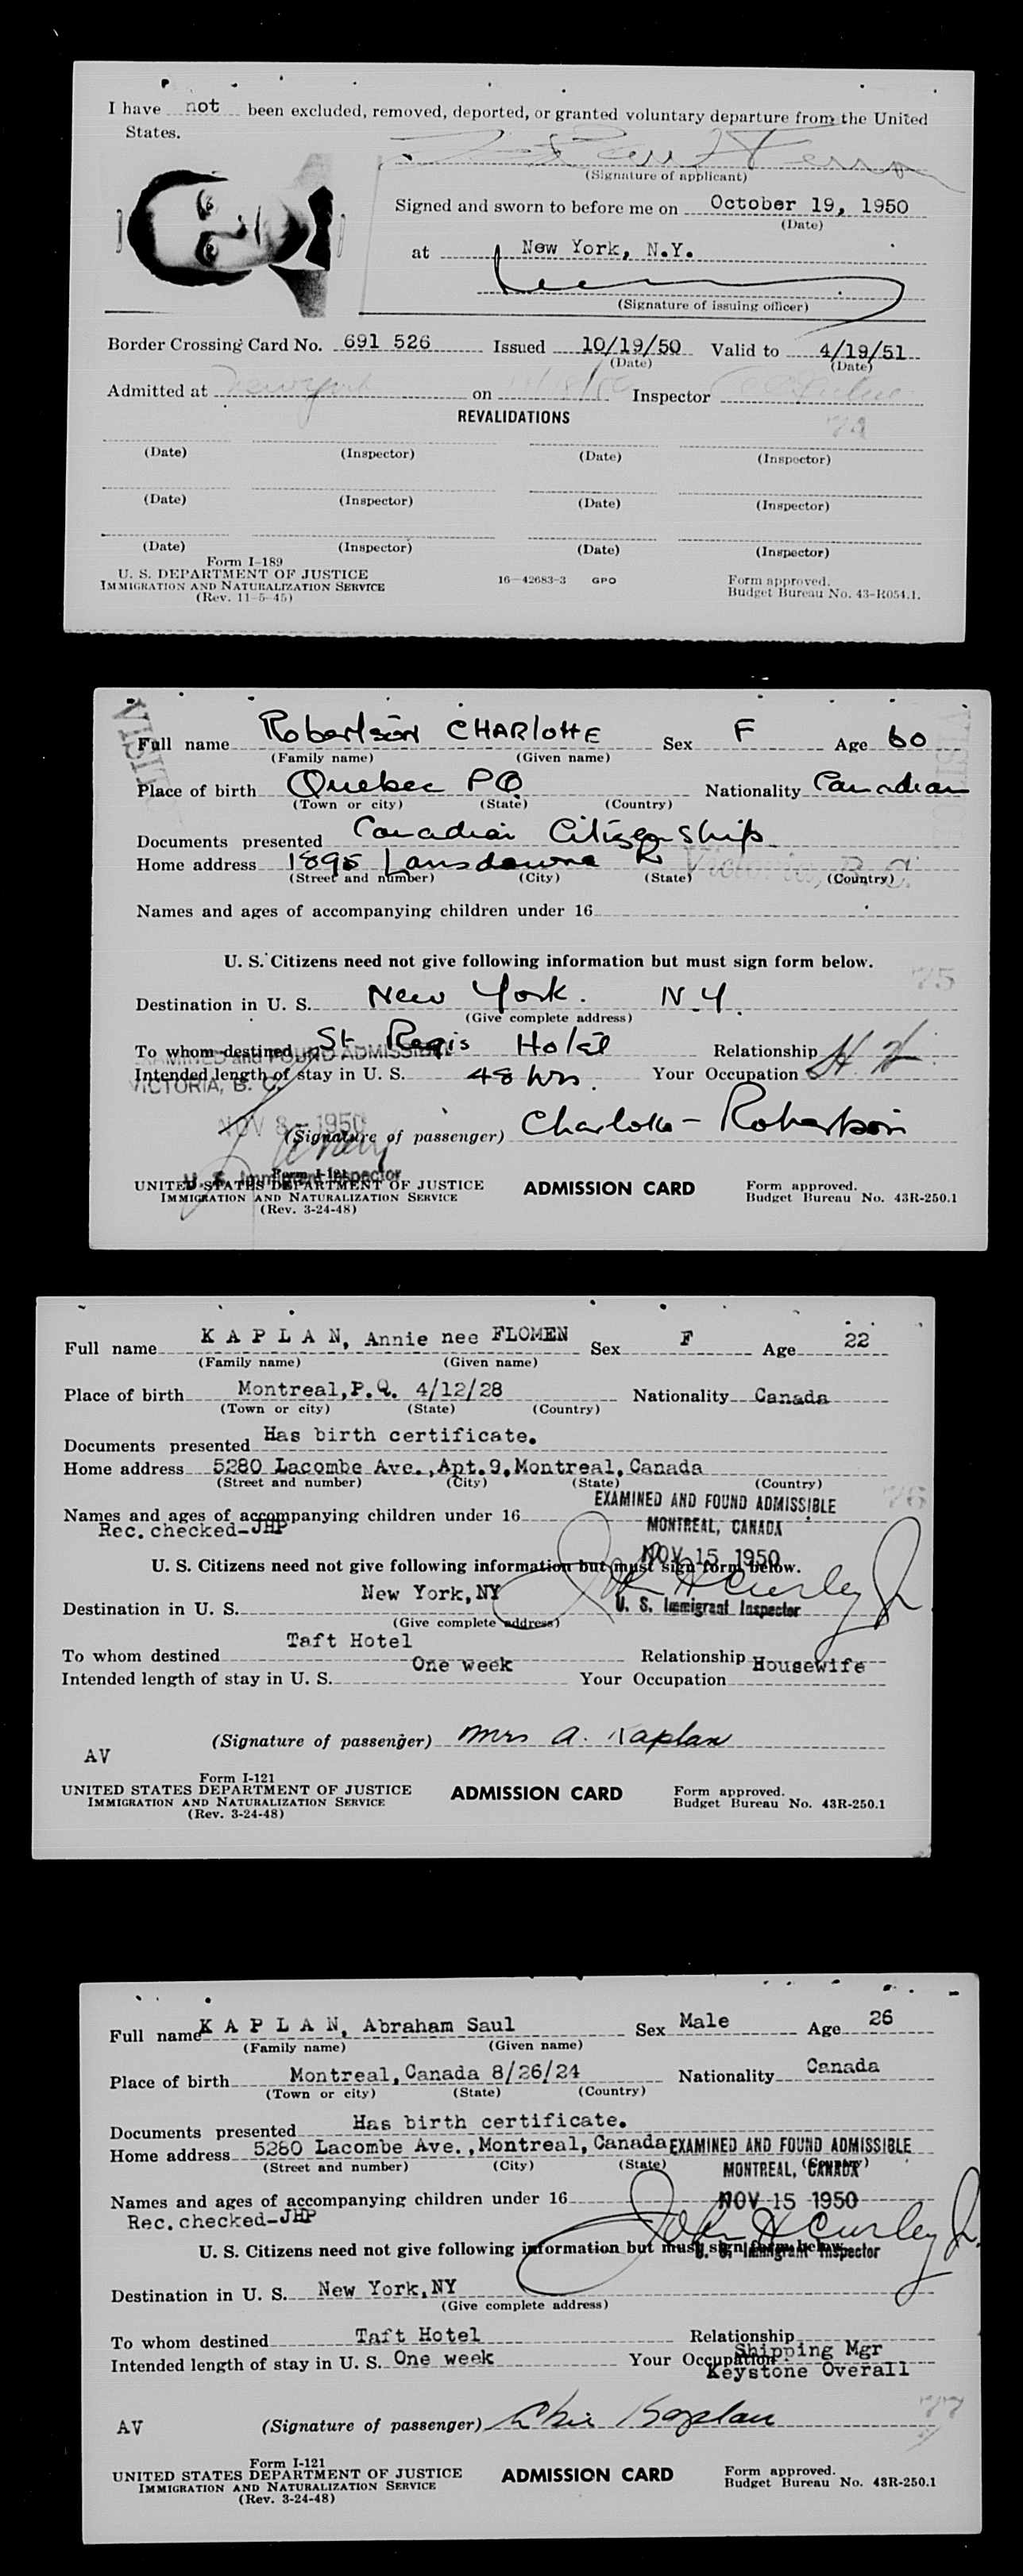 I have not been excluded, removed, deported, or granted voluntary departure from the United
States.
(Signature of applicant)
Signed and sworn to before me on October 19, 1950
(Date)
at New York, N.Y.
(Signature of issuing officer)
Border Crossing Card No. 691 526 Issued 10/19/50 Valid to 4/19/51
(Date) (Date)
Admitted at New York on Inspector
REVALIDATIONS 74
(Date) (Inspector) (Date) (Inspector)
(Date) (Inspector) (Date) (Inspector)
(Date) (Inspector) (Date) (Inspector)
Form I-189
U. S. DEPARTMENT OF JUSTICE
IMMIGRATION AND NATURALIZATION SERVICE
(Rev. 11-5-45)
16—42683-3 GPO
Form approved.
Budget Bureau No. 43-R054.1.
Full name Robertson CHARLOTTE Sex F Age 60
(Family name) (Given name)
Place of birth Quebec PQ Nationality Canadian
(Town or city) (State) (Country)
Documents presented Canadian Citizenship
Home address 1895 Lansdowne R Victoria, B. C.
(Street and number) (City) (State) (Country)
Names and ages of accompanying children under 16
U. S. Citizens need not give following information but must sign form below.
75
Destination in U. S. New York. N.Y.
(Give complete address)
To whom destined St Regis Hotel Relationship
EXAMINED and FOUND ADMISSIBLE
Intended length of stay in U. S. 48 hrs. Your Occupation H. W.
VICTORIA, B. C.
NOV 8 - 1950
(Signature of passenger) Charlotte - Robertson
U. S. Immigrant Inspector
Form I-121
UNITED STATES DEPARTMENT OF JUSTICE
IMMIGRATION AND NATURALIZATION SERVICE
(Rev. 3-24-48)
ADMISSION CARD
Form approved.
Budget Bureau No. 43R-250.1
Full name K A P L A N, Annie nee FLOMEN Sex F Age 22
(Family name) (Given name)
Place of birth Montreal,P.Q. 4/12/28 Nationality Canada
(Town or city) (State) (Country)
Documents presented Has birth certificate.
Home address 5280 Lacombe Ave.,Apt.9,Montreal,Canada
(Street and number) (City) (State) (Country)
EXAMINED AND FOUND ADMISSIBLE 76
Names and ages of accompanying children under 16
Rec.checked-JHP
MONTREAL, CANADA
NOV 15 1950
U. S. Citizens need not give following information but must sign form below.
John H Curley Jr
U. S. Immigrant Inspector
Destination in U. S. New York,NY
(Give complete address)
To whom destined Taft Hotel Relationship
Intended length of stay in U. S. One week Your Occupation Housewife
(Signature of passenger) Mrs A. Kaplan
AV
Form I-121
UNITED STATES DEPARTMENT OF JUSTICE
IMMIGRATION AND NATURALIZATION SERVICE
(Rev. 3-24-48)
ADMISSION CARD
Form approved.
Budget Bureau No. 43R-250.1
Full name K A P L A N, Abraham Saul Sex Male Age 26
(Family name) (Given name)
Place of birth Montreal,Canada 8/26/24 Nationality Canada
(Town or city) (State) (Country)
Documents presented Has birth certificate.
Home address 5280 Lacombe Ave.,Montreal,Canada EXAMINED AND FOUND ADMISSIBLE
(Street and number) (City) (State) (Country)
MONTREAL, CANADA
Names and ages of accompanying children under 16
NOV 15 1950
Rec.checked-JHP
John H Curley Jr.
U. S. Citizens need not give following information but must sign form below.
U. S. Immigrant Inspector
Destination in U. S. New York,NY
(Give complete address)
To whom destined Taft Hotel Relationship
Intended length of stay in U. S. One week Your Occupation Shipping Mgr
Keystone Overall
AV (Signature of passenger) Abie Kaplan 77
Form I-121
UNITED STATES DEPARTMENT OF JUSTICE
IMMIGRATION AND NATURALIZATION SERVICE
(Rev. 3-24-48)
ADMISSION CARD
Form approved.
Budget Bureau No. 43R-250.1